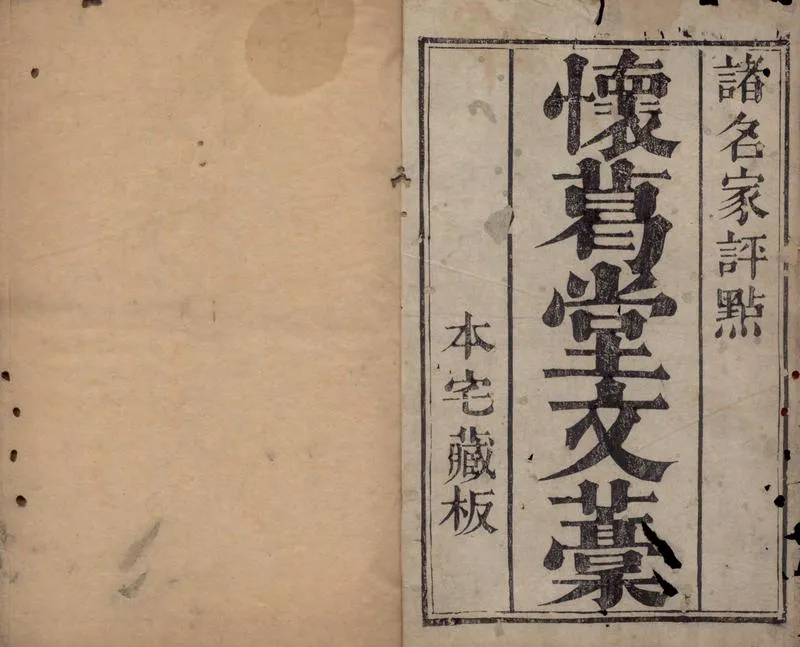 諸名家評點
懷葛堂文藁
本宅藏板